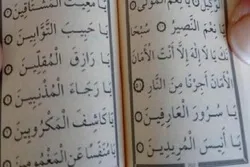 الْوَكِيلُ ۞ يَا نِعْمَ الْمَوْلَىٰ
يَا نِعْمَ النَّصِيرُ ۞
يَا لَا إِلٰهَ إِلَّا أَنْتَ الْأَمَانَ
الْأَمَانَ أَجِرْنَا مِنَ النَّارِ ۞
يَا سُرُورَ الْعَارِفِينَ ۞
يَا أَنِيسَ الْمُرِيدِينَ
يَا مُغِيثَ الْمُشْتَاقِينَ
يَا حَبِيبَ التَّوَّابِينَ ۞
يَا رَازِقَ الْمُقِلِّينَ ۞
يَا رَجَاءَ الْمُذْنِبِينَ ۞
يَا كَاشِفَ الْمَكْرُوبِينَ ۞
يَا مُنَفِّسًا عَنِ الْمَغْمُومِينَ